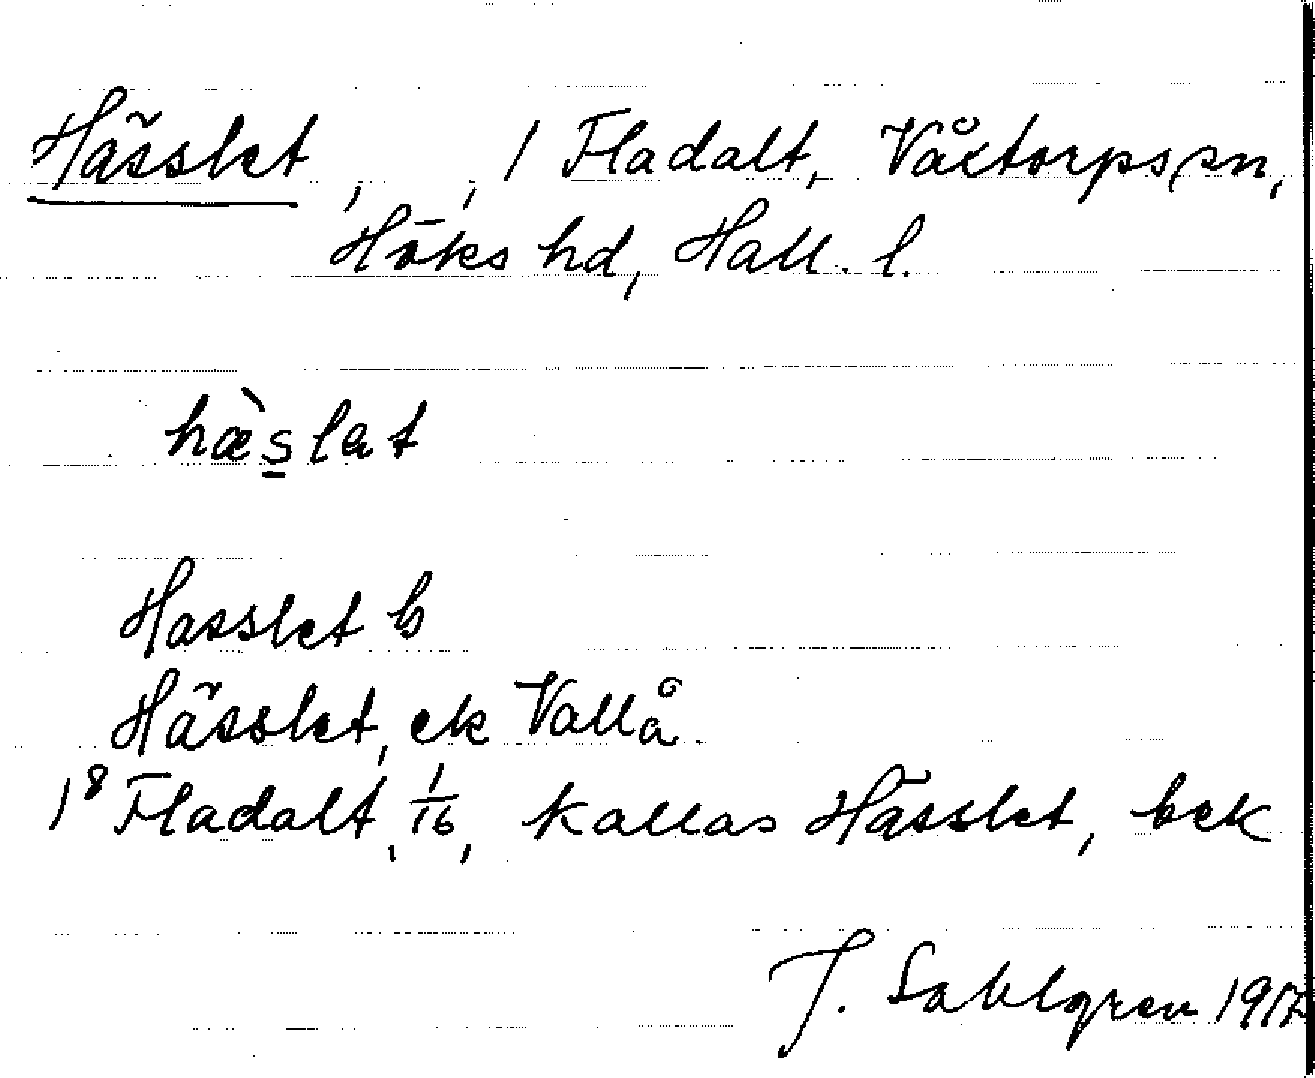 Hässlet, , 1 Fladalt, Våxtorps sn,
Höks hd, Hall. l.
hæ̀s̲lat
Hasslet b
Hässlet, ek Vallå.
1⁸ Fladalt, 1/16, kallas Hässlet, bek
J. Sahlgren 1917